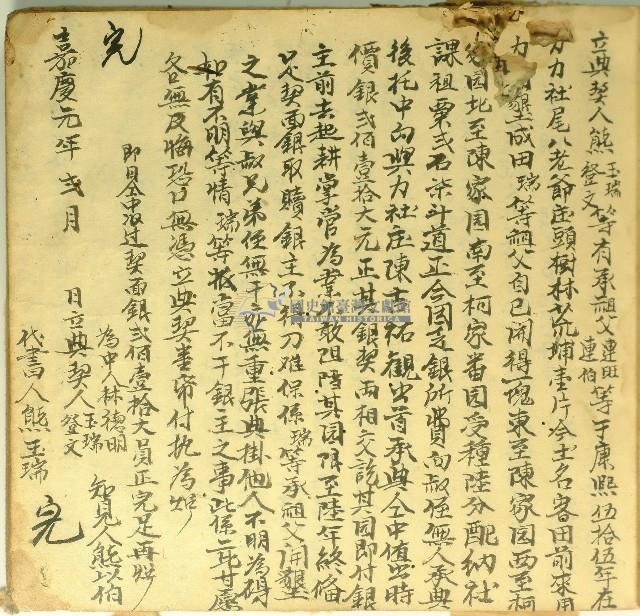 立典契人熊玉瑞、登文等有承祖父連旺、連伯等于康熙伍拾伍年在
力力社尾八老爺庄頭樹林荒埔壹片今土名舊田前來用
力開墾成田瑞等祖父自己開得一塊東至陳家园西至柯
家园北至陳家园南至柯家番园受種陸分配納社
課租粟弍石柒斗道正今因乏銀所費向叔侄無人承典
後托中向與力社庄陳士祐観出首承典仝中値出時
價銀弍佰壹拾大元正其銀契兩相交訖其园即付銀
主前去起耕掌管為業不敢阻擋其园限至陸年終備
足契面銀取贖銀主不得刁难保係瑞等承祖父開墾
之業與叔兄弟侄無干亦無重張典掛他人不明為碍
如有不明等情瑞等抵當不干銀主之事此係二比甘愿
各無反悔恐口無憑立典契壹帋付执為炤
即日仝中收过契面銀弍佰壹拾大員正完足再炤
為中人林德明
知見人熊以伯
嘉慶元年弍月 日立典契人玉瑞、登文
代書人熊玉瑞
完
完
國史館臺灣文獻館
TAIWAN HISTORICA